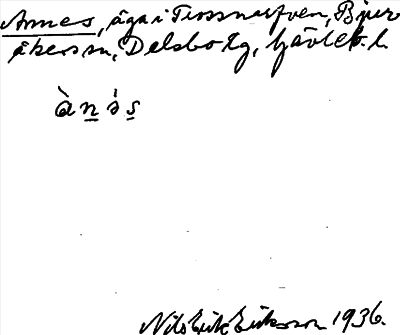 Annes, äga i Trossnarfven, Bjur
åkers sn, Delsbo tg, Gävleb. l.
à n i s
Nils Erik Eriksson 1936.